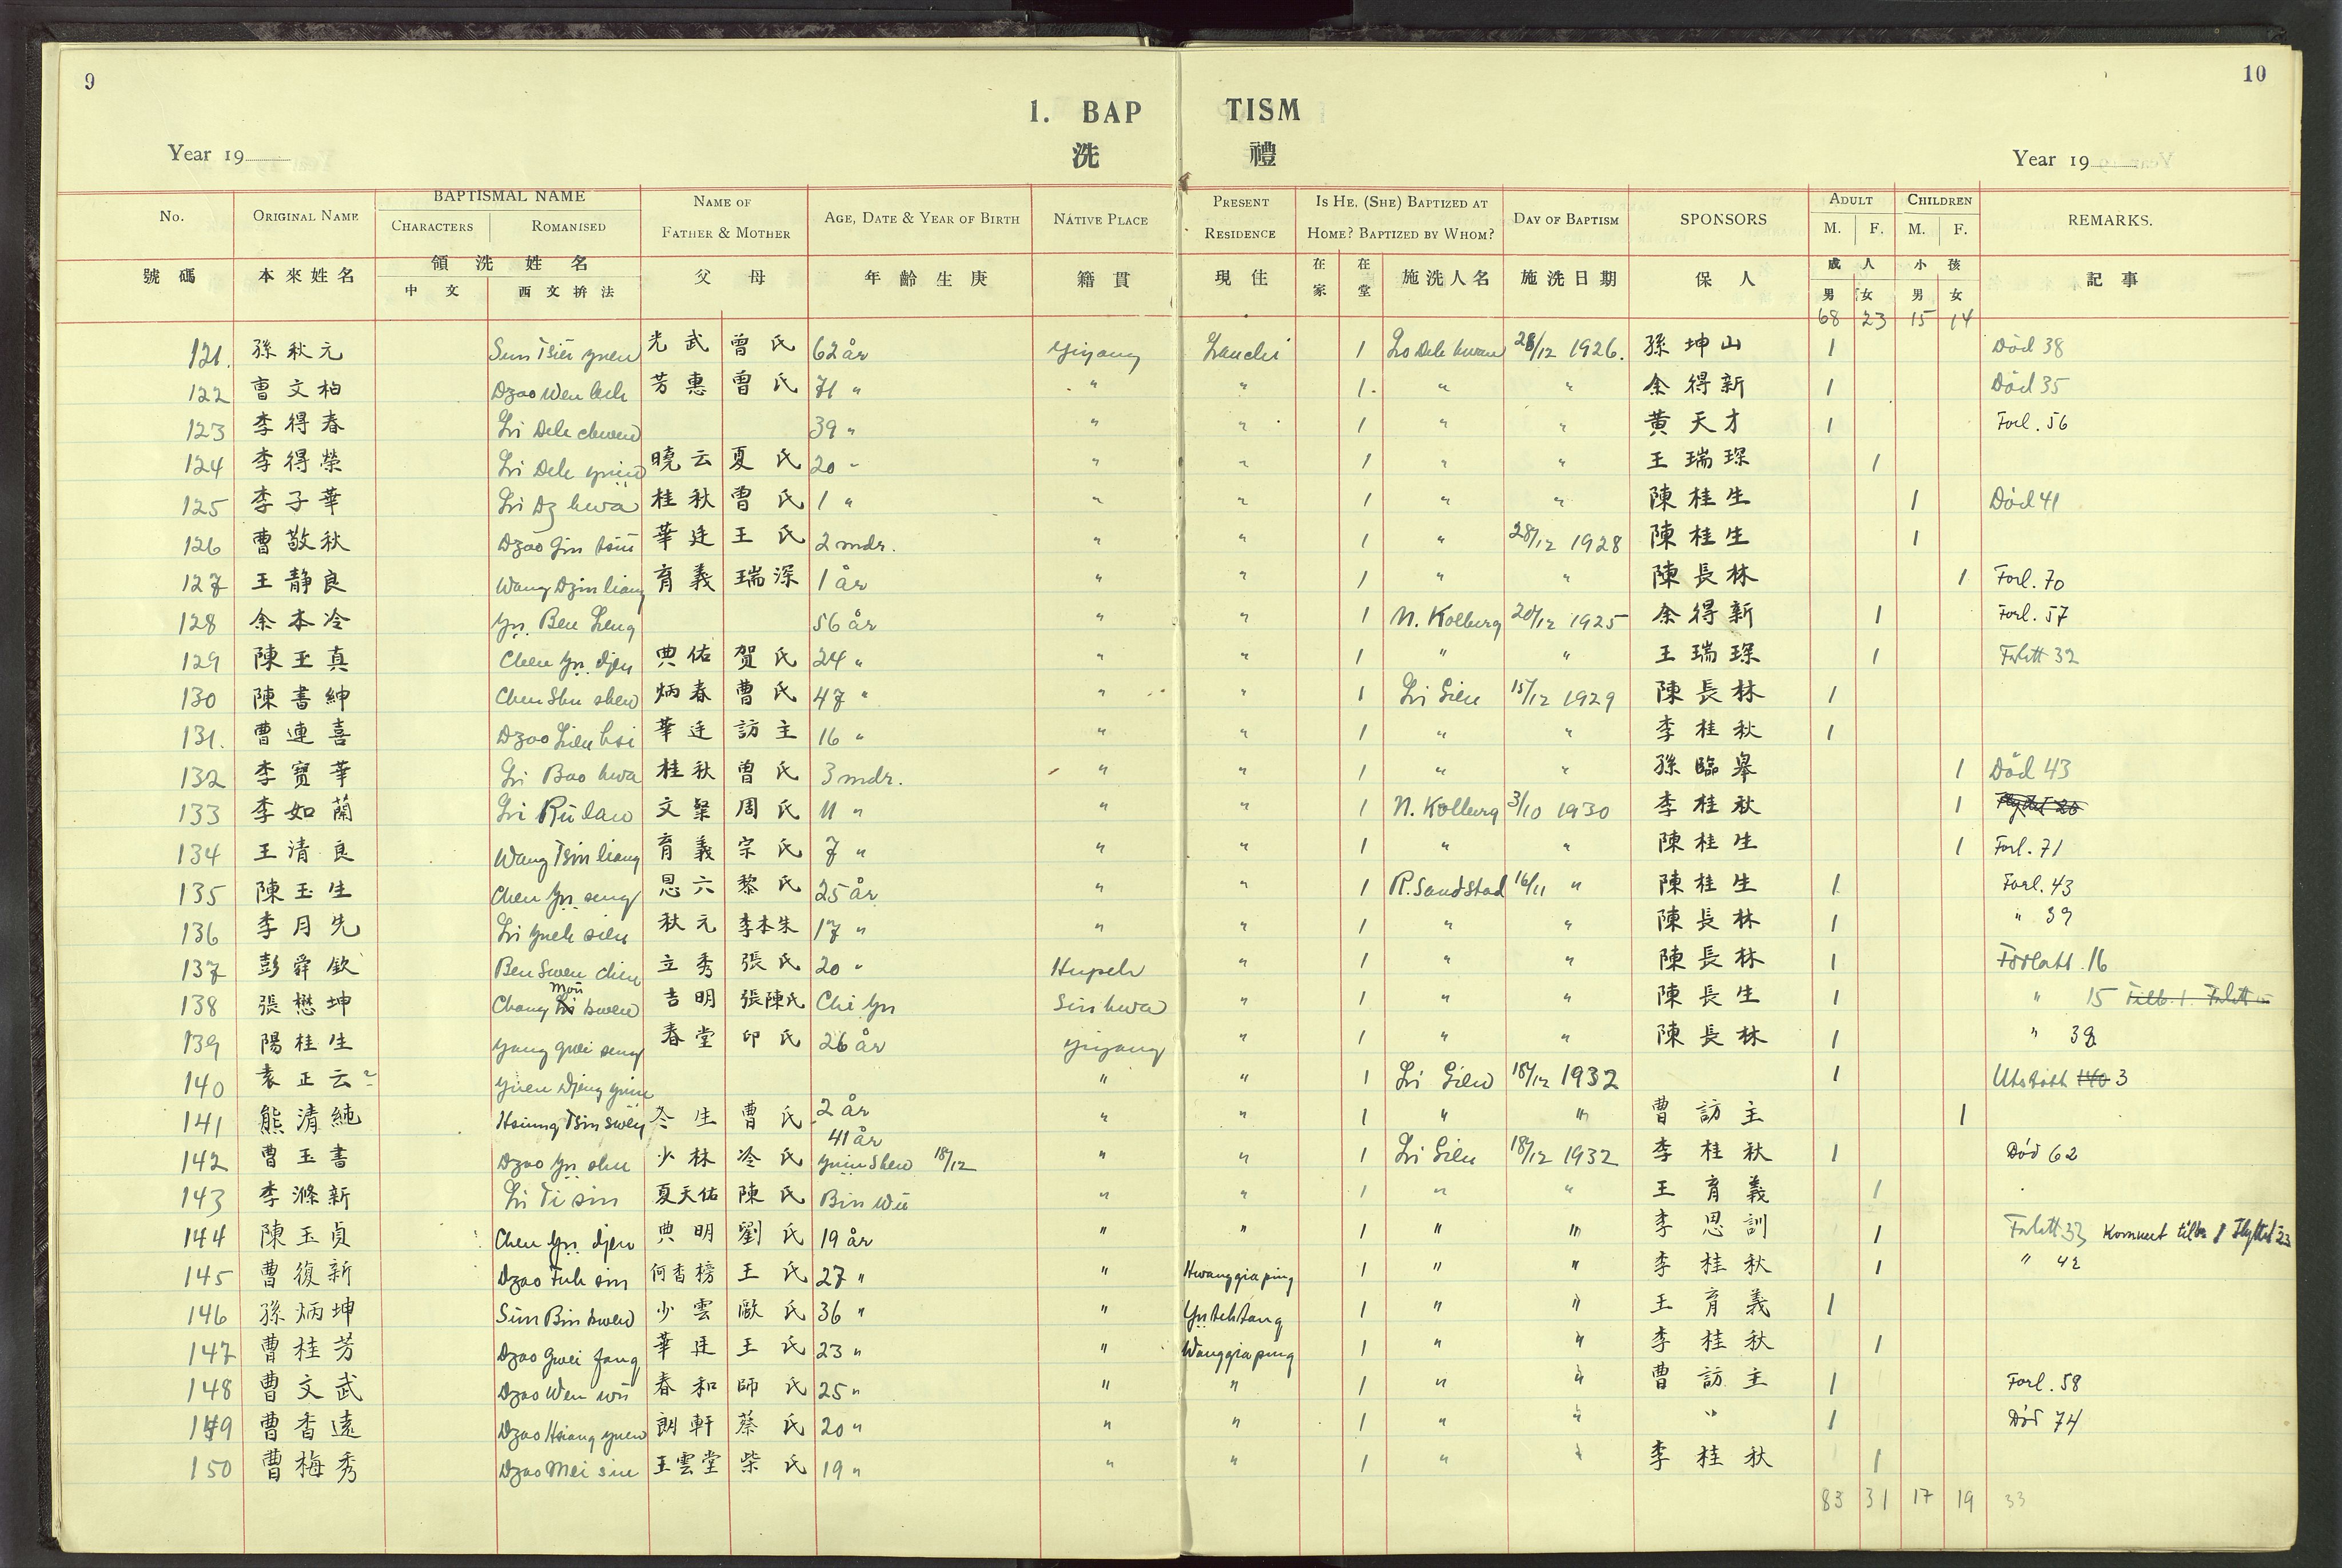 9
10
1. BAP TISM
洗 禮
Year 19
Year 19
No. ORIGINAL NAME BAPTISMAL NAME CHARACTERS ROMANISED NAME OF FATHER & MOTHER AGE, DATE & YEAR OF BIRTH NATIVE PLACE PRESENT RESIDENCE IS HE, (SHE) BAPTIZED AT HOME? BAPTIZED BY WHOM? DAY OF BAPTISM SPONSORS ADULT M. F. CHILDREN M. F. REMARKS.
號碼 本來姓名 領洗姓名 中文 西文拚法 父母 年齡生庚 籍貫 現住 在家 在堂 施洗人名 施洗日期 保人 成人 男 女 小孩 男 女 記事
68 23 15 14
121. 孫秋元 光武 曾氏 62 år Yiyang 1 28/12 1926. 孫坤山 1 Död 38
122 曹文柏 Dzao Wen 芳惠 曾氏 71 " " " 1. " " 余得新 1 Död 35
123 李得春 Li Deh chwen 39 " " " 1 " " 黄天才 1 Forl. 56
124 李得榮 Li Deh 曉云 夏氏 20 " " " 1 " " 王瑞琛 1
125 李子華 Li Dz hwa 桂秋 曾氏 1 " " " 1 " " 陳桂生 1 Död 41
126 曹敬秋 Dzao 華廷 王氏 2 mdr. " " 1 " 28/12 1928 陳桂生 1
127 王靜良 Wang Dzin liang 育義 瑞深 1 år " " 1 " " 陳長林 1 Forl. 70
128 余本冷 Yü Ben Leng 56 år " " 1 N. Kolberg 20/12 1925 余得新 1 Forl. 57
129 陳玉真 Chen Yü djen 典佑 贺氏 24 " " " 1 " " 王瑞琛 1 32
130 陳書紳 Chen Shu shen 炳春 曹氏 47 " " " 1 Li Sien 15/12 1929 陳長林 1
131. 曹連喜 Dzao Lien hsi 華廷 訪主 16 " " " 1 " " 李桂秋 1
132 李寳華 Li Bao hwa 桂秋 曾氏 3 mdr. " " 1 " " 孫臨皋 1 Död 43
133 李如蘭 Li Rü lan 周氏 11 " " " 1 N. Kolberg 3/10 1930 李桂秋 1
134 王清良 Wang Tsin liang 育義 宗氏 7 " " " 1 " " 陳桂生 1 Forl. 71
135 陳玉生 Chen Yü seng 恩六 黎氏 25 år " " 1 R. Sandstad 16/11 " 陳桂生 1 Forl. 43
136 李月先 Li Yueh sien 秋元 李本朱 17 " " " 1 " " 陳長林 1 " 39
137 彭舜欽 立秀 張氏 20 " Hupeh " 1 " " 陳長林 1 Forlatt. 16
138 張懋坤 Chang Mou kwen 吉明 張陳氏 Chi Yu Sinhwa " 1 " " 陳長生 1 " 15
139 陽桂生 Yang Gwei seng 春堂 印氏 26 år Yiyang " 1 " " 陳長林 1 " 38
140 袁正云 ? Yuen Djeng yuin " " 1 Li Sien 18/12 1932 1 3
141 熊清純 Hsiung Tsin 冬生 曹氏 2 år " " 1 " " 曹訪主 1
142 曹玉書 Dzao Yü shu 少林 冷氏 41 år 18/12 " " 1 Li Sien 18/12 1932 李桂秋 1 Död 62
143 李滌新 Li Ti sin 夏天佑 陳氏 Bin Wu " " 1 " " 王育義 1
144 陳玉貞 Chen Yü djen 典明 劉氏 19 år " " 1 " " 李思訓 1 33 Kommet
145 曹復新 Dzao Fuh sin 何香榜 王氏 27 " " Hwanggiaping 1 " " 李桂秋 1 " 42
146 孫炳坤 Sün Bin kwen 少雲 歐氏 36 " " 1 " " 王育義 1
147 曹桂芳 Dzao Gwei fang 華廷 王氏 23 " " Wanggiaping 1 " " 李桂秋 1
148 曹文武 Dzao Wen wu 春和 師氏 25 " " " 1 " " 曹訪主 1 Forl. 58
149 曹香遠 Dzao Hsiang yuen 朗軒 蔡氏 20 " " " 1 " " " 1 Död 74
150 曹梅秀 Dzao Mei siu 王雲堂 柴氏 19 " " " 1 " " 李桂秋 1
83 31 17 19 33